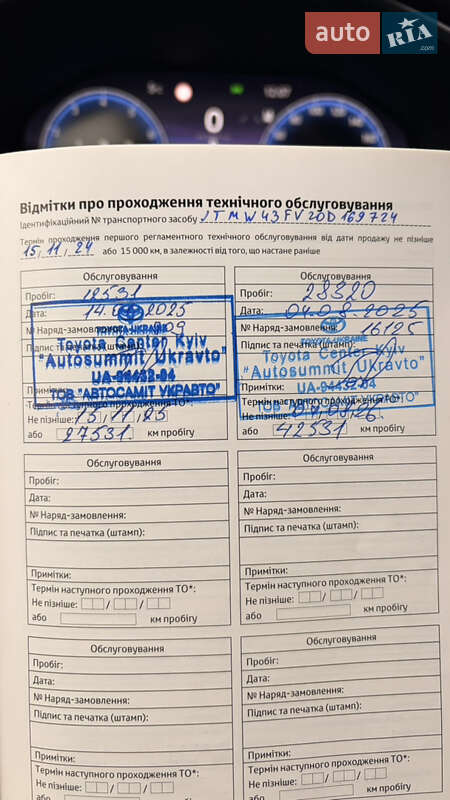 auto RIA .com
0
Відмітки про проходження технічного обслуговування
Ідентифікаційний № транспортного засобу JTMW43FV20D169724
Термін проходження першого регламентного технічного обслуговування від дати продажу не пізніше
15, 11, 24 або 15 000 км, в залежності від того, що настане раніше
Обслуговування
Пробіг: 12531
Дата: 2025
№ Наряд-замовлення:
Підпис та печатка
TOYOTA-UKRAINE
Toyota Center Kyiv
"Autosummit/Ukravto"
UA-04432-04
Примітки:
ТОВ "АВТОСАМІТ УКРАВТО"
Термін наступного проходження ТО*:
Не пізніше: 15/11/25
або 27531 км пробігу
Обслуговування
Пробіг: 28320
Дата: 04.08.2025
№ Наряд-замовлення: 16125
Підпис та печатка (штамп):
TOYOTA-UKRAINE
Toyota Center Kyiv
"Autosummit/Ukravto"
Примітки: UA-04432-04
Термін наступного проходження ТО*:
Не пізніше:
або 42531 км пробігу
Обслуговування
Пробіг:
Дата:
№ Наряд-замовлення:
Підпис та печатка (штамп):
Примітки:
Термін наступного проходження ТО*:
Не пізніше: / /
або км пробігу
Обслуговування
Пробіг:
Дата:
№ Наряд-замовлення:
Підпис та печатка (штамп):
Примітки:
Термін наступного проходження ТО*:
Не пізніше: / /
або км пробігу
Обслуговування
Пробіг:
Дата:
№ Наряд-замовлення:
Підпис та печатка (штамп):
Примітки:
Термін наступного проходження ТО*:
Не пізніше: / /
або км пробігу
Обслуговування
Пробіг:
Дата:
№ Наряд-замовлення:
Підпис та печатка (штамп):
Примітки:
Термін наступного проходження ТО*:
Не пізніше: / /
або км пробігу